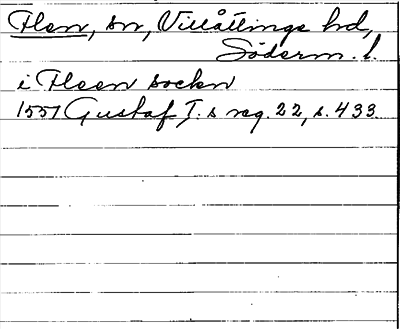 Flen, sn, Villåttinge hd,
Söderm. l.
i Fleen sockn
1557 Gustaf I. s reg. 22, s. 433